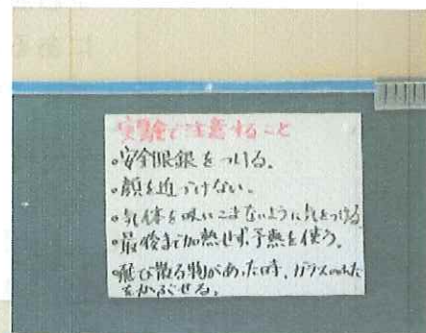 実験で注意すること
・安全眼鏡をつける。
・顔を近づけない。
・気体を吸いこまないように気をつける
・最後まで加熱せず、予熱を使う。
・飛び散る物があった時、ガラスのふた
をかぶせる。